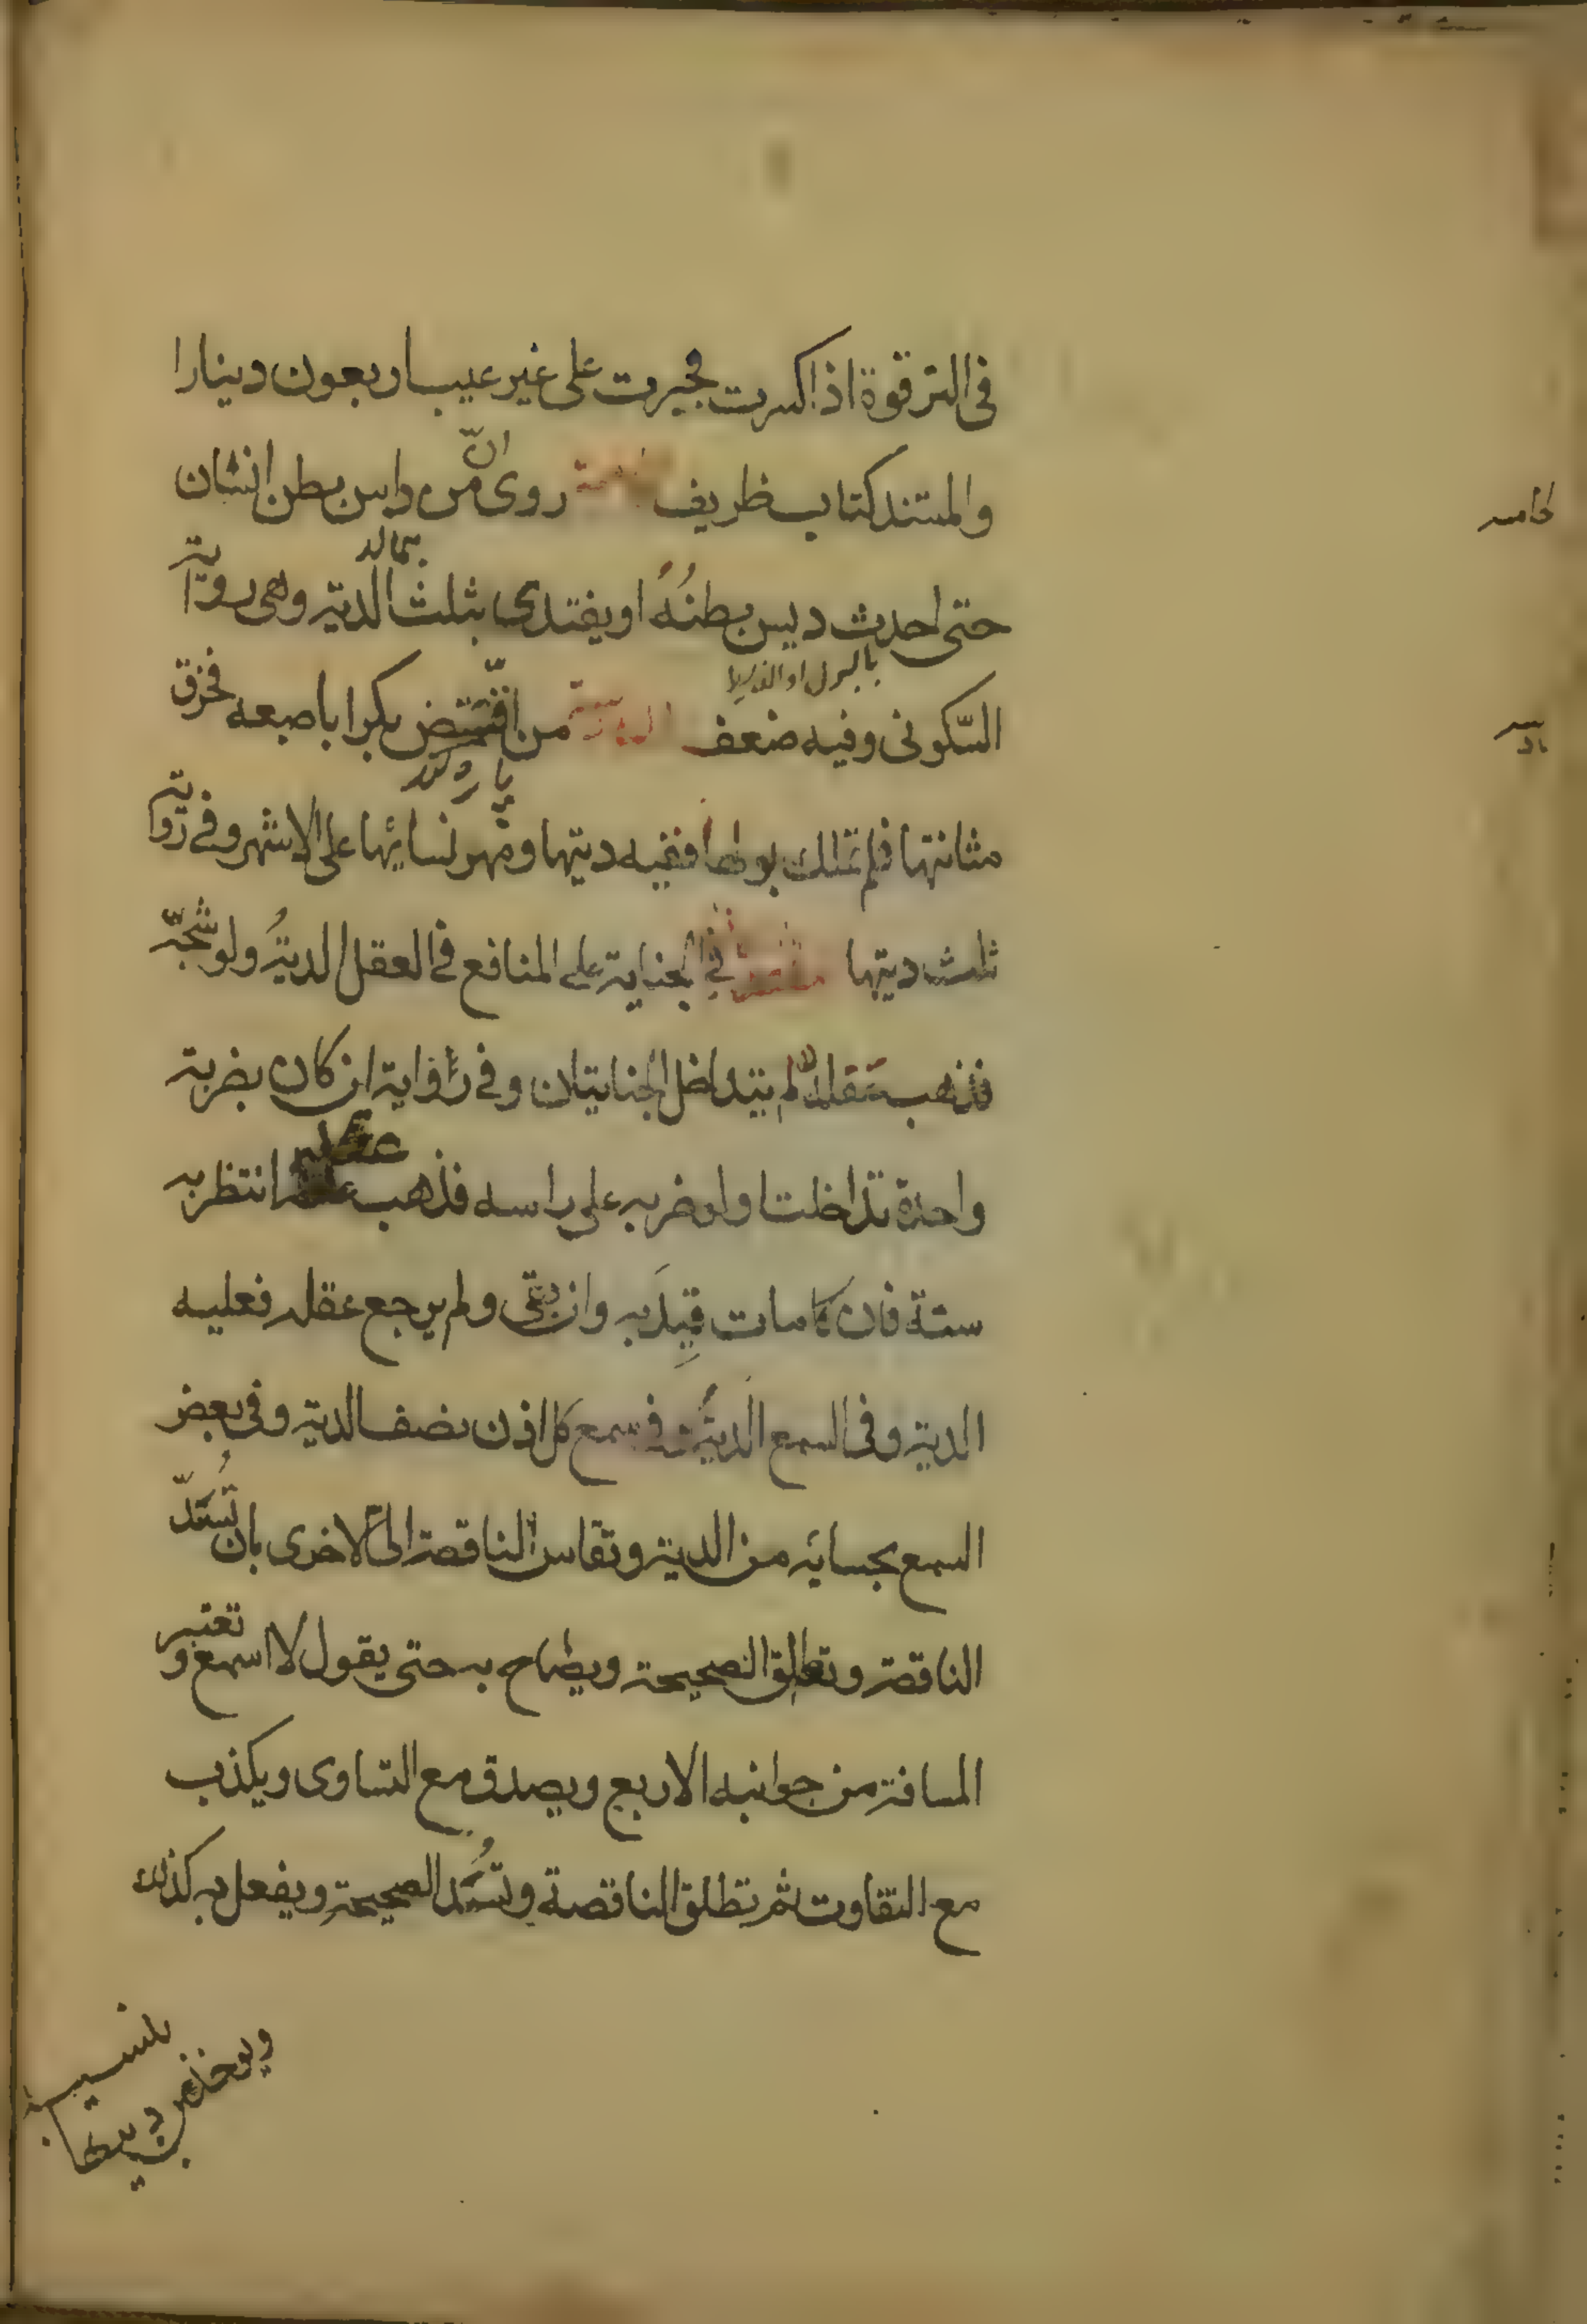 فى الترقوة اذا كسرت فجبرت على غير عيب اربعون دينارا
والمستند كتاب ظريف الخامسة روى انّ من داس بطن انسان
حتى احدث ديس بطنُهُ او يفتدى بثلث الدية وهى رواية
السّكونى وفيه ضعف السادسة من افتضّ بكرا باصبعه فخرق
مثانتها فلم تملك بولها ففيه ديتها ومهر نسائها على الاشهر وفى رواية
ثلث ديتها فى الجناية على المنافع فى العقل الديةُ ولو شجّه
فذهب عقله لم يتداخل الجنايتان وفى رواية ان كان بضربة
واحدة تداخلتا ولو ضربه على راسه فذهب عقله انتظر به
سنة فان مات قِيدَ به وان بقى ولم يرجع عقله فعليه
الدية وفى السمع الدية وفى سمع كل اذن نصف الدية وفى بعض
السمع بحسابه من الدية وتقاس الناقصة الى الاخرى بان تُسَدّ
الناقصة وتطلق الصحيحة ويصاح به حتى يقول لا اسمع وتعتبر
المسافة من جوانبه الاربع ويصدق مع التساوى ويكذب
مع التفاوت ثم تطلق الناقصة وتُسَدّ الصحيحة ويفعل به كذلك
ويوخذ من ديتها
الخامسه